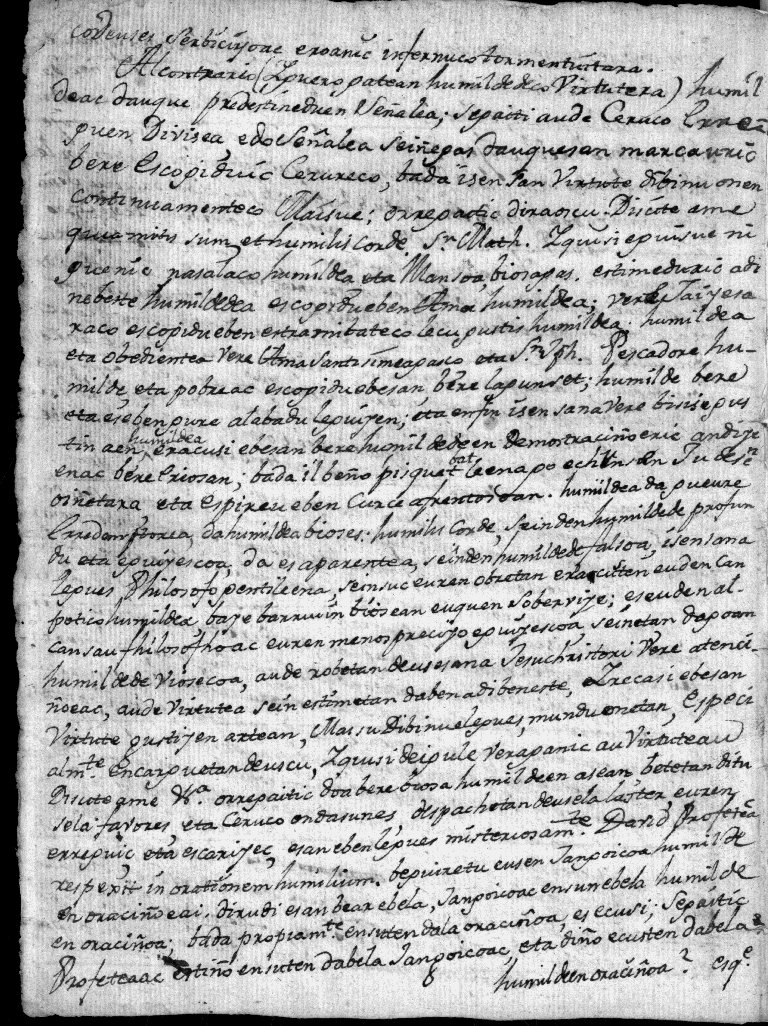 cordenses serbicijoac eroanic infernuco tormentuetara.
Alcontrario (Zguero patean humildedeco Virtutera) humil
deac dauque predestineduen Señalea; sepaiti aude Ceruco Erre
guen Divisea, edo Señalea seiñegas dauquesan marcauric
bere Escogiduic Cerureco, bada isen san Virtute dibinu onen
continuamenteco Maisue; orregaitic diraoscu. Discite ame
quia mitis sum, et humilis Corde. Sn. Math. Zgusi eguisue ni
ganic pasalaco humildea eta Mansoa biosagas. estimeduric adi
nebeste humildedea escogidu eben Ama humildea; vere Jaijesa
raco escogidu eben estramitateco lecu gustis humildea; humildea
eta obedientea vere Ama Santisimeagasco eta Sn. Jph. Pescadore hu-
milde, eta pobreac escogidu ebesan bere lagunset; humilde bere
eta eseben gure alabadu leguijen; eta enfin isen sana vere bisi segus
tin aen humildea, eracusi ebesan bere humildedeen demostraciñoeric andije
enac bere Criosan; bada il beño pisquet bat leenago echun sen Judesen
oiñetara eta Espireu eben Curce afrentosoan. humildea da gueure
Erredentorea, da humildea bioses: humilis Corde, seinden humildede profun
du eta eguijescoa, da es aparentea, seinden humildede falsoa, isen sana
legues Philosofo gentileena, seinsuc euren obretan eracusten euden Can
potico humildea baje barruin biosean euquen Sobervije; es euden al-
cansau philosophoac euren menospreciijo eguijescoa seinetan dagoan
humildede Viosecoa, aude robetan deuesana Jesuchristori Vere atenci-
ñoeac, aude Virtutea sein estimetan daben adibeneste, Zrecasi ebesan
Virtute gustijen artean, Maisu Dibinu legues, mundu onetan, Especi
almte. Encarguetan deuscu, Zgusi deigule Veraganic au Virtuteau
Discite a me &a. orregaitic doa bere biosa humildeen asean betetan ditu
sela favores, eta Ceruco ondasunes, despachetan deusela laster, euren
erreguic, eta escarijec, esan eben legues misteriosamte. David Profetea
respexit in orationem humilium. begiuretu eusen Jangoicoa humilde
en oraciñoeai. dirudi esan bear ebela, Jangoicoac ensun ebela humilde
en oraciñoa; bada propiamte. ensuten dala oraciñoa, es ecusi; Segaitic
Profeteaac estiño ensuten dabela Jangoicoac, eta diño ecusten dabela
humildeen oraciñoa? esqe.